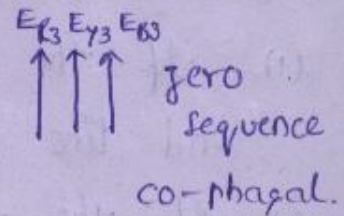 E_R3 E_Y3 E_B3
zero
sequence
co-phasal.